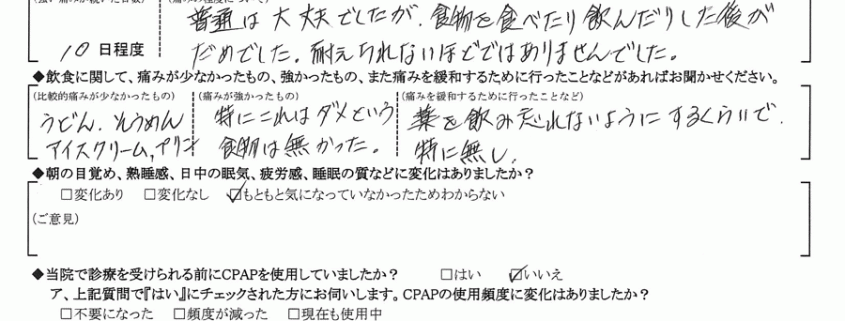 普通は大丈夫でしたが、食物を食べたり飲んだりした後が
10日程度
だめでした。耐えられないほどではありませんでした。
◆飲食に関して、痛みが少なかったもの、強かったもの、また痛みを緩和するために行ったことなどがあればお聞かせください。
(比較的痛みが少なかったもの)
うどん、そうめん
アイスクリーム、プリン
(痛みが強かったもの)
特にこれはダメという
食物は無かった。
(痛みを緩和するために行ったことなど)
薬を飲み忘れないようにするくらいで、
特に無し
◆朝の目覚め、熟睡感、日中の眠気、疲労感、睡眠の質などに変化はありましたか?
□変化あり □変化なし ☑もともと気になっていなかったためわからない
(ご意見)
◆当院で診療を受けられる前にCPAPを使用していましたか? □はい ☑いいえ
ア、上記質問で『はい』にチェックされた方にお伺いします。CPAPの使用頻度に変化はありましたか?
□不要になった □頻度が減った □現在も使用中